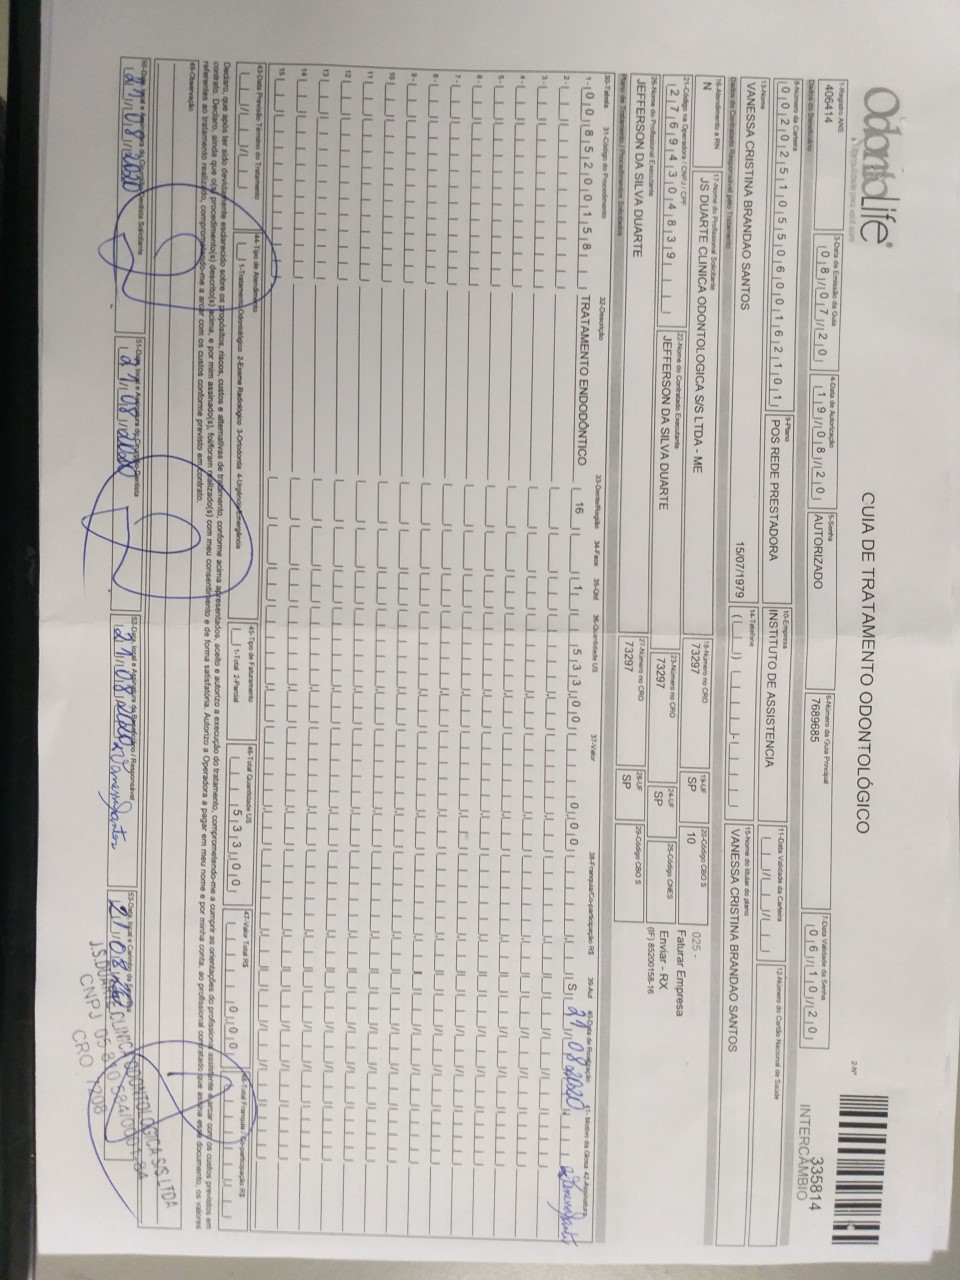 OdontoLife®
GUIA DE TRATAMENTO ODONTOLÓGICO
2-Nº
335814
INTERCÂMBIO
1-Registro ANS
406414
3-Data de Emissão da Guia
08/07/20
4-Data de Autorização
19/08/20
5-Senha
AUTORIZADO
6-Número da Guia Principal
7689685
7-Data Validade da Senha
06/10/20
Dados do Beneficiário
8-Número da Carteira
00202510550600162101
9-Plano
POS REDE PRESTADORA
10-Empresa
INSTITUTO DE ASSISTENCIA
11-Data Validade da Carteira
12-Número do Cartão Nacional de Saúde
13-Nome
VANESSA CRISTINA BRANDAO SANTOS
15/07/1979
14-Telefone
15-Nome do titular do plano
VANESSA CRISTINA BRANDAO SANTOS
Dados do Contratado Responsável pelo Tratamento
16-Atendimento a RN
N
17-Nome do Profissional Solicitante
JS DUARTE CLINICA ODONTOLOGICA S/S LTDA - ME
18-Número no CRO
73297
19-UF
SP
20-Código CBO S
10
025 -
Faturar Empresa
Enviar - RX
(IF) 85200158-16
21-Código na Operadora / CNPJ / CPF
27694304839
22-Nome do Contratado Executante
JEFFERSON DA SILVA DUARTE
23-Número no CRO
73297
24-UF
SP
25-Código CNES
26-Nome do Profissional Executante
JEFFERSON DA SILVA DUARTE
27-Número no CRO
73297
28-UF
SP
29-Código CBO S
Plano de Tratamento / Procedimentos Solicitados
30-Tabela 31-Código do Procedimento 32-Descrição 33-Dente/Região 34-Face 35-Qtd 36-Quantidade US 37-Valor 38-Franquia/Co-participação R$ 39-Aut 40-Data de Realização 41-Motivo da Glosa 42-Assinatura
1- 00 85200158 TRATAMENTO ENDODÔNTICO 16 1 533,00 0,00 S 21/08/2020
2-
3-
4-
5-
6-
7-
8-
9-
10
11
12
13
14
15
43-Data Previsão Término do Tratamento
44-Tipo de Atendimento
1-Tratamento Odontológico 2-Exame Radiológico 3-Ortodontia 4-Urgência/Emergência
45-Tipo de Faturamento
1-Total 2-Parcial
46-Total Quantidade US
533,00
47-Valor Total R$
0,00
48-Total Franquia / Co-participação R$
Declaro, que após ter sido devidamente esclarecido sobre os propósitos, riscos, custos e alternativas de tratamento, conforme acima apresentados, aceito e autorizo a execução do tratamento, comprometendo-me a cumprir as orientações do profissional assistente e arcar com os custos previstos em
contrato. Declaro, ainda que o(s) procedimento(s) descrito(s) acima, e por mim assinado(s), foi/foram realizado(s) com meu consentimento e de forma satisfatória. Autorizo a Operadora a pagar em meu nome e por minha conta, ao profissional contratado que assina esse documento, os valores
referentes ao tratamento realizado, comprometendo-me a arcar com os custos conforme previsto em contrato.
49-Observação
21/08/2020
51-Data, local e Assinatura do Cirurgião-Dentista
21/08/2020
52-Data, local e Assinatura do Beneficiário / Responsável
21/08/2020
J.S.DUARTE CLINICA ODONTOLOGICA SS LTDA